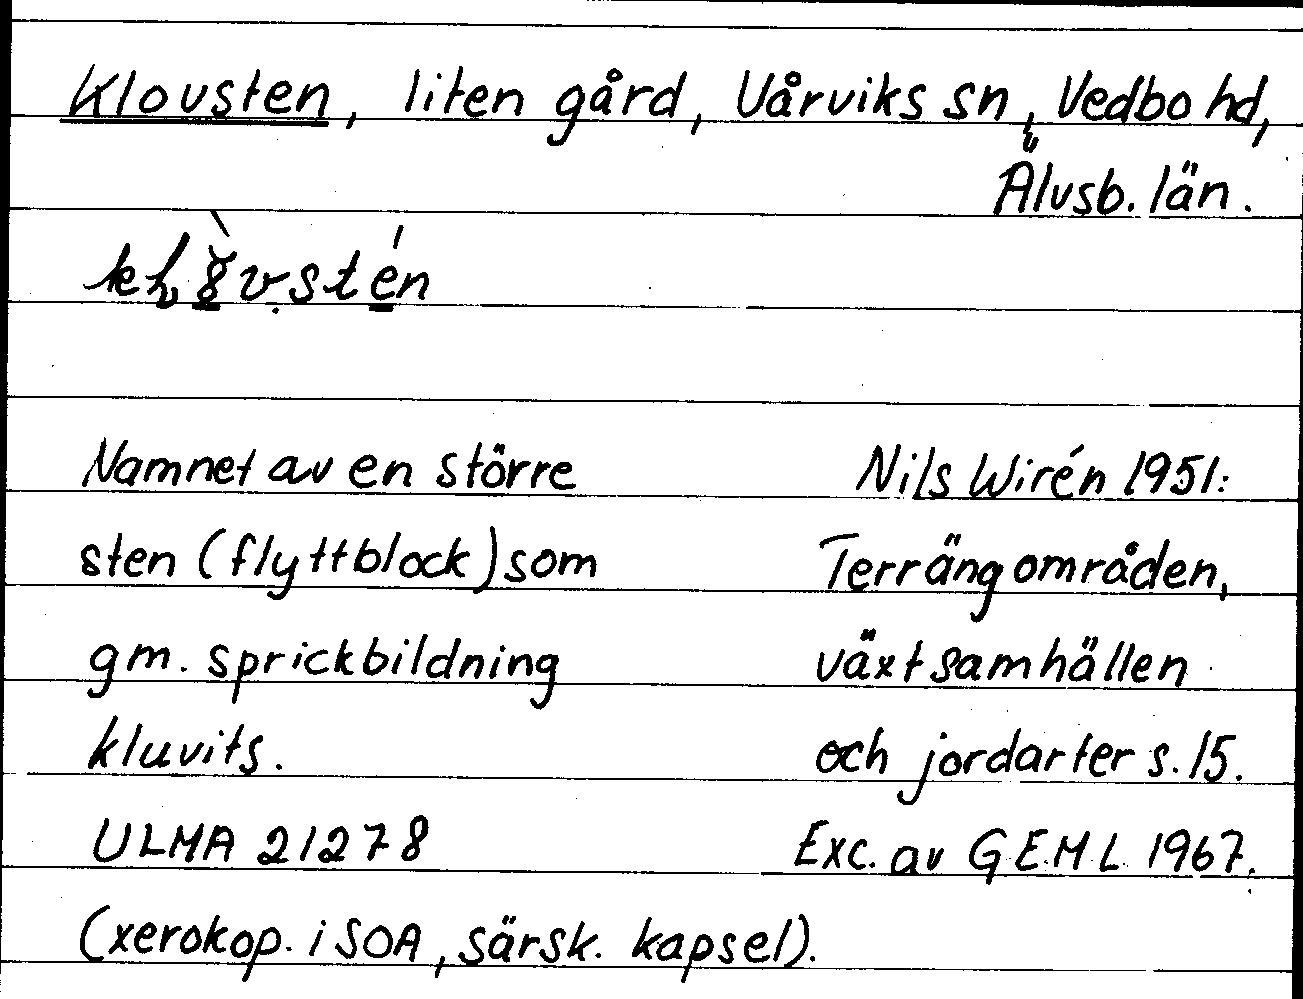 Klovsten, liten gård, Vårviks sn, Vedbo hd,
Älvsb. län.
Namnet av en större
sten (flyttblock) som
gm. sprickbildning
kluvits.
ULMA 21278
(xerokop. i SOA, särsk. kapsel).
Nils Wirén 1951:
Terrängområden,
växtsamhällen
och jordarter s. 15.
Exc. av GEML 1967.